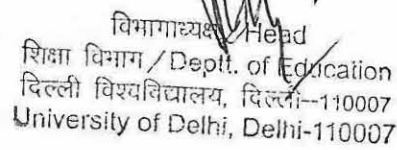 विभागाध्यक्ष/Head
शिक्षा विभाग/Deptt. of Education
दिल्ली विश्वविद्यालय, दिल्ली--110007
University of Delhi, Delhi-110007